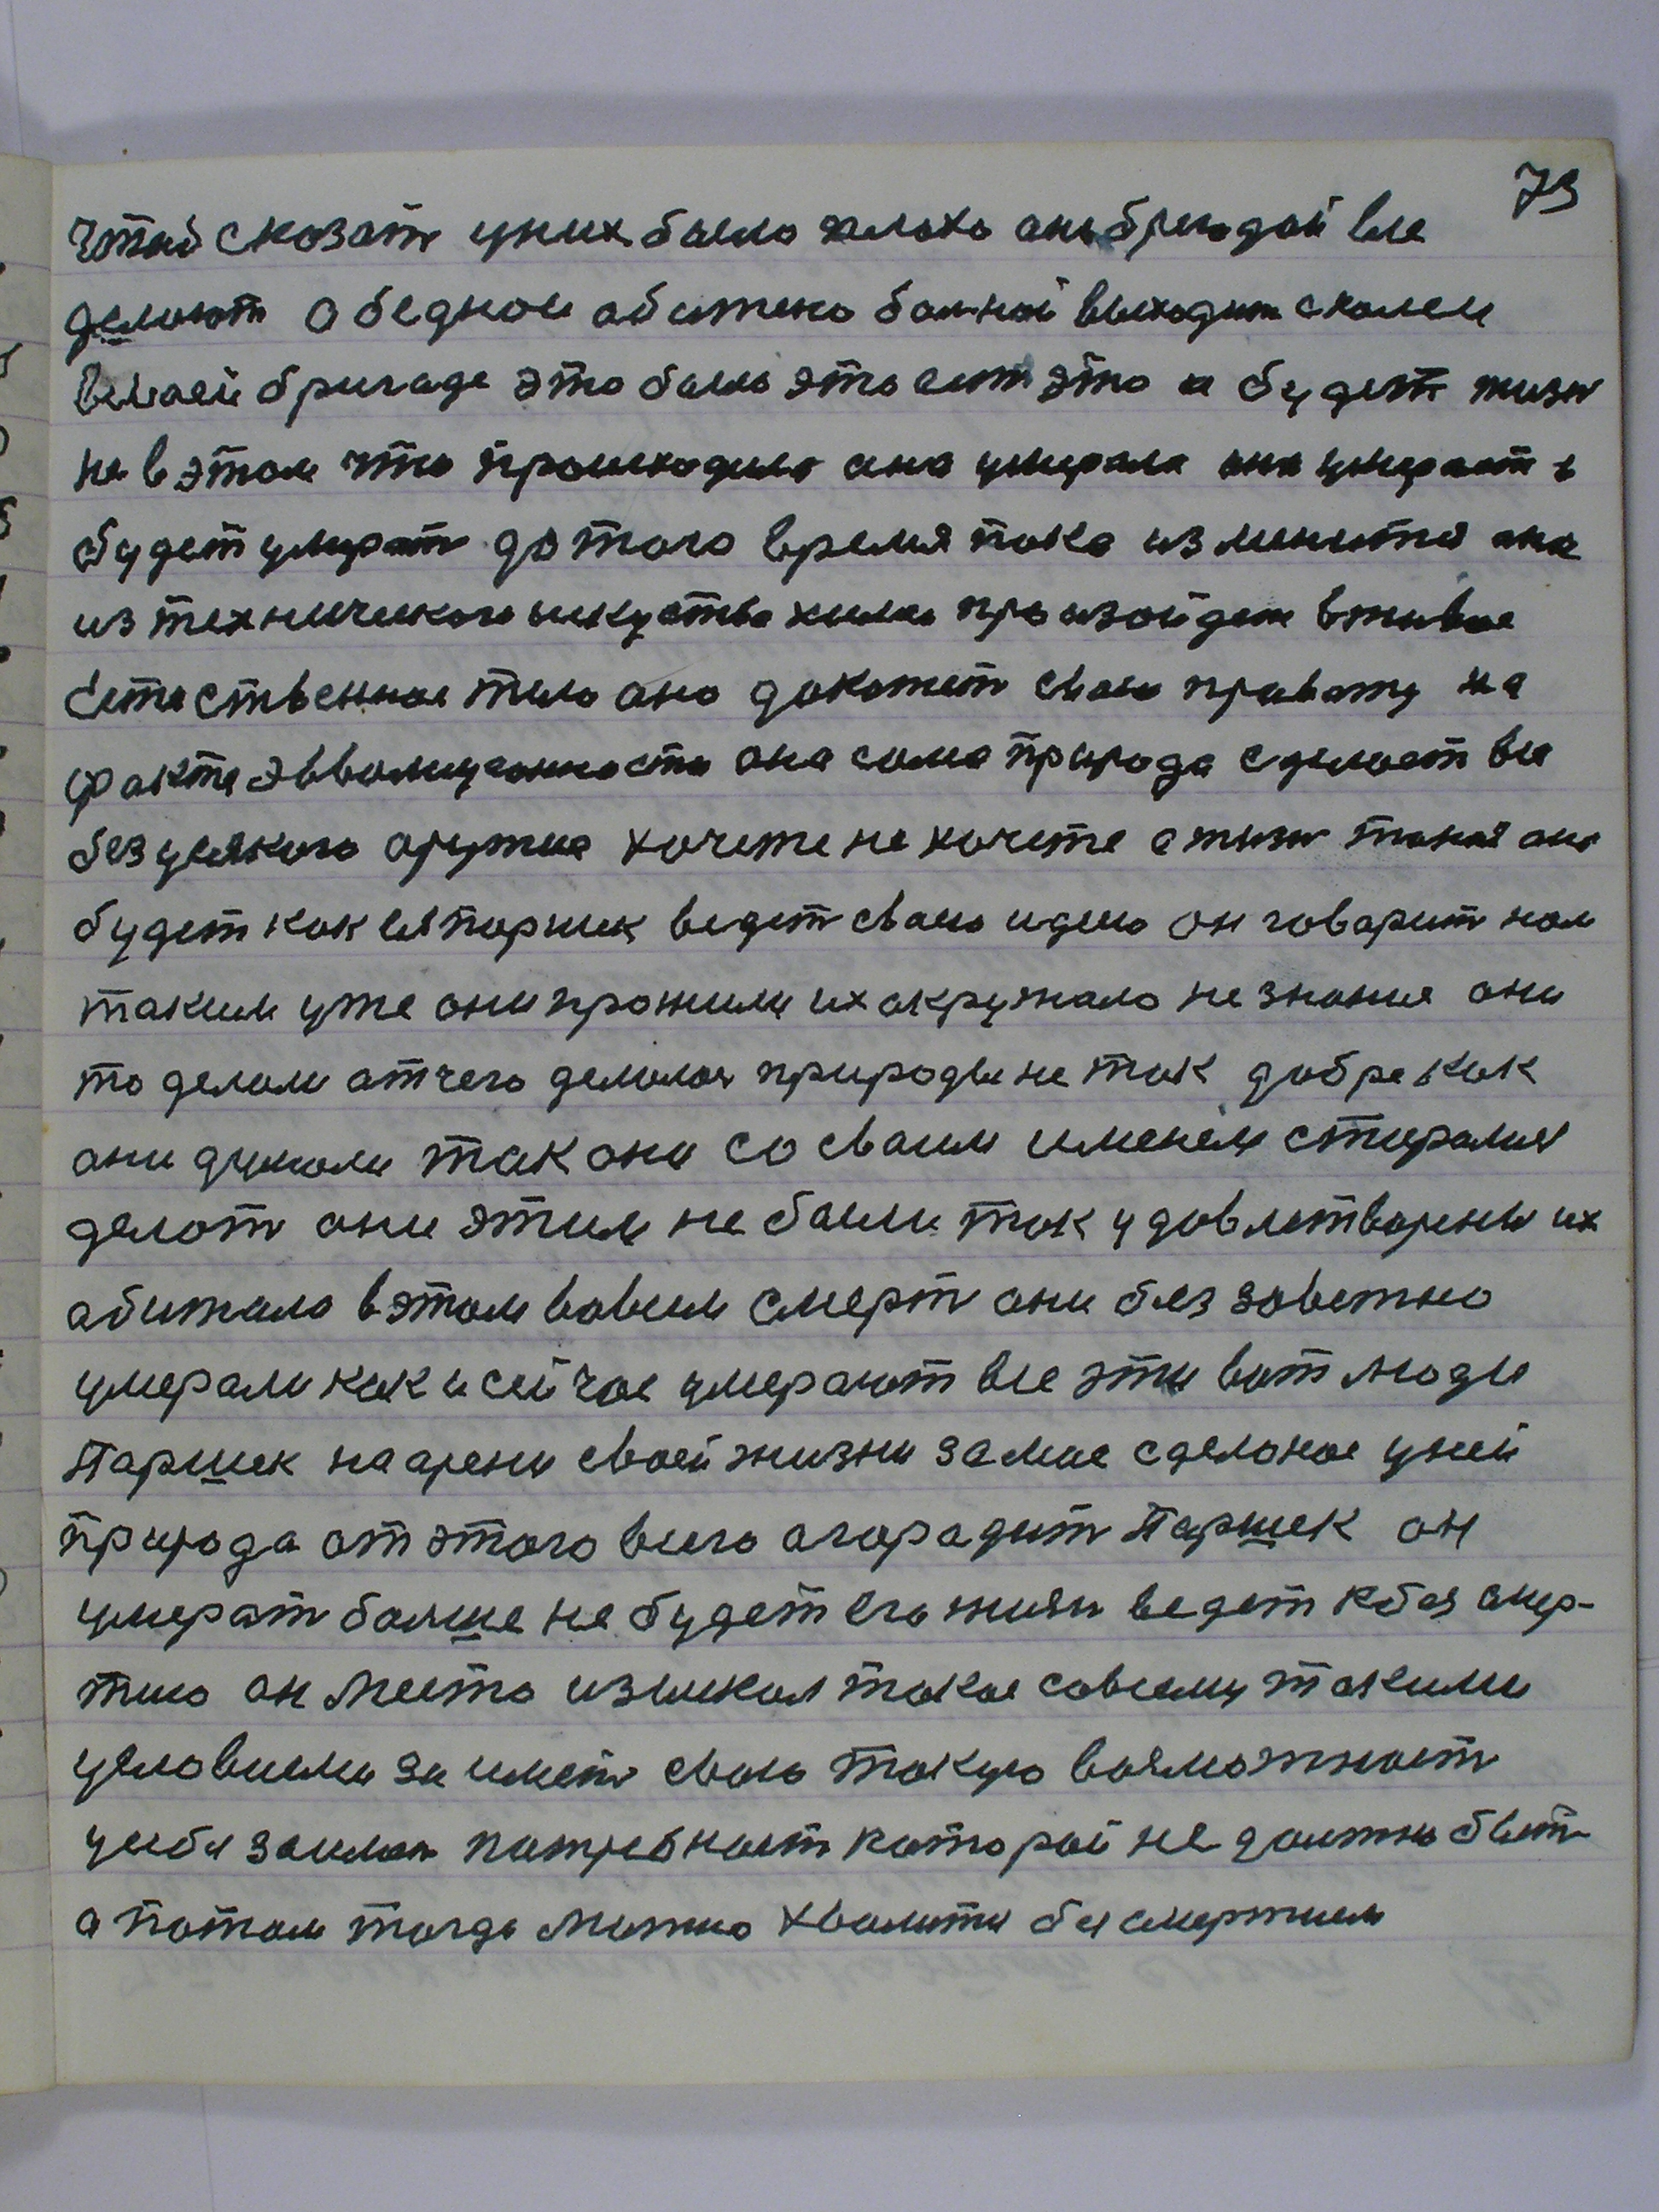 73
чтоб сказат уних было плохо они бригадой все
делают а бедном обижено болной выходит сколеи
всией бригаде это было это ест это и будет жизн
не в этом что происходило она умерала она умерает и
будет умират до того время пока изменится она
из технического искуства химии произойдет вживое
Естественное тело оно докажет свою правату на
факте эвволуционности она сама природа сделает все
без усякого оружия хочете не хочете а жизн такая она
будет как я Паршек ведет свою идею он говарит нам
таким уже они прожили их окружало не знание они
то делали от чего делалось природы не так добре как
они думали так они со своим именем стиралися
делат они этим не были так удовлетворены их
обижало вэтом вовсем смерт они беззаветно
умерали как и сейчас умерают все эти вот люди
Паршек на арени своей жизни самое сделоное уней
природа от этого всего огородит Паршек он
умерат болше не будет его жизн ведет к без смер-
тию он место изыскал такое совсему такими
условиеми за имет свою такую возможност
усебя потребност которой не должно быт
а потом тогда можно хвалится бесмертием